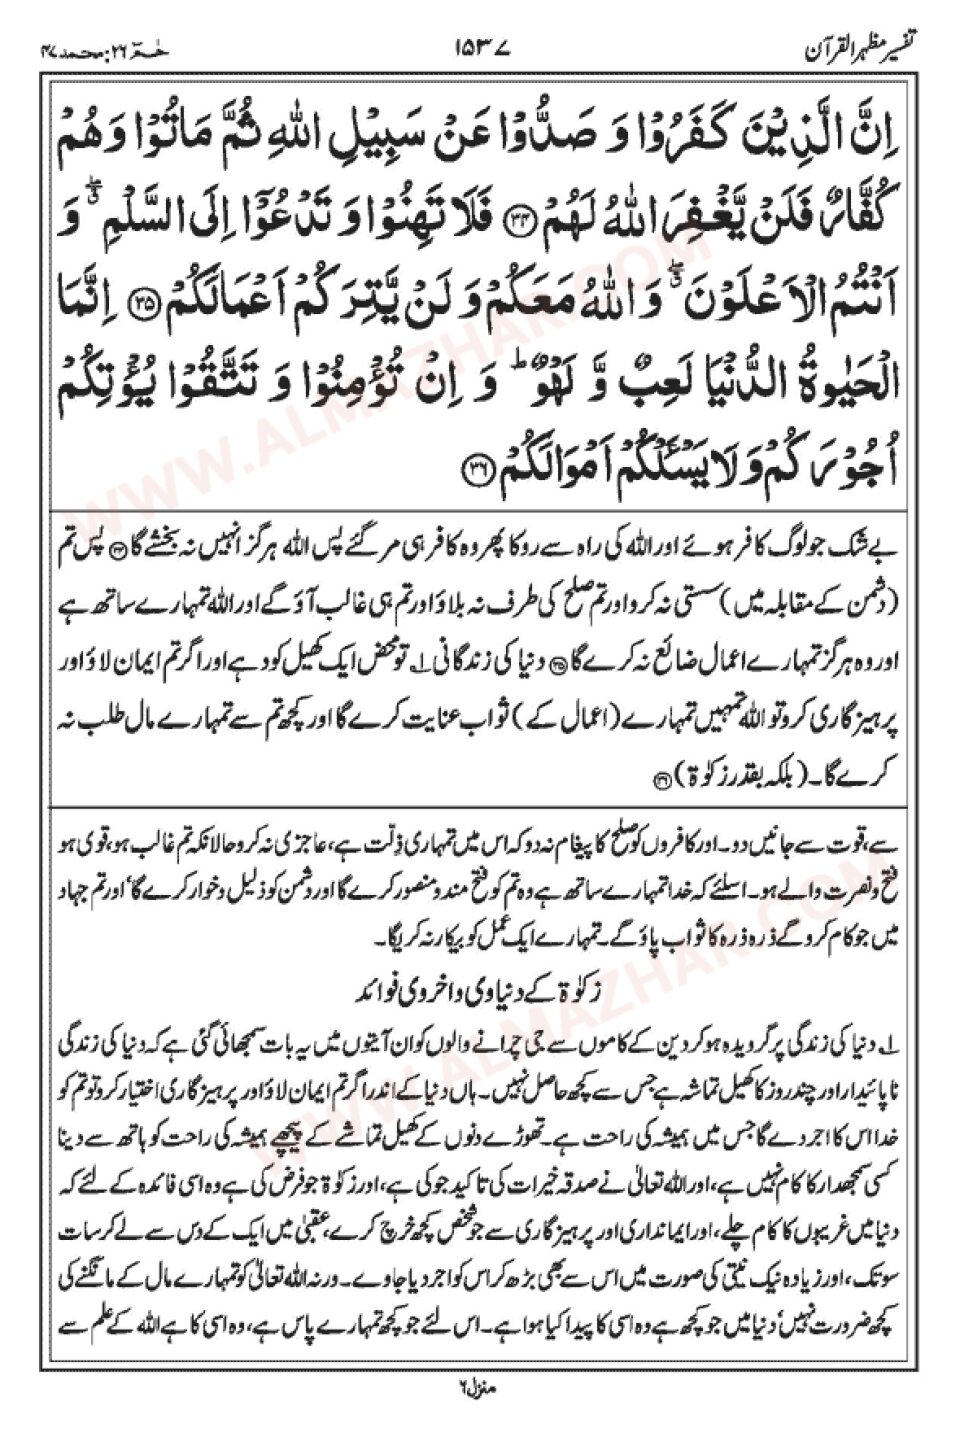 تفسیر مظہرالقرآن
۱۵۳۷
حٰمٓ ۲۶: محمد ۴۷
اِنَّ الَّذِیْنَ کَفَرُوْا وَ صَدُّوْا عَنْ سَبِیْلِ اللّٰهِ ثُمَّ مَاتُوْا وَهُمْ
کُفَّارٌ فَلَنْ یَّغْفِرَ اللّٰهُ لَهُمْ ﴿۳۴﴾ فَلَا تَهِنُوْا وَ تَدْعُوْٓا اِلَی السَّلْمِ ۖ وَ
اَنْتُمُ الْاَعْلَوْنَ ۖ وَ اللّٰهُ مَعَکُمْ وَ لَنْ یَّتِرَکُمْ اَعْمَالَکُمْ ﴿۳۵﴾ اِنَّمَا
الْحَیٰوةُ الدُّنْیَا لَعِبٌ وَّ لَهْوٌ ؕ وَ اِنْ تُؤْمِنُوْا وَ تَتَّقُوْا یُؤْتِکُمْ
اُجُوْرَکُمْ وَ لَا یَسْـَٔلْکُمْ اَمْوَالَکُمْ ﴿۳۶﴾
بے شک جو لوگ کافر ہوئے اور اللہ کی راہ سے روکا پھر وہ کافر ہی مر گئے پس اللہ ہرگز انہیں نہ بخشے گا ﴿۳۴﴾ پس تم
(دشمن کے مقابلہ میں) سستی نہ کرو اور تم صلح کی طرف نہ بلاؤ اور تم ہی غالب آؤ گے اور اللہ تمہارے ساتھ ہے
اور وہ ہرگز تمہارے اعمال ضائع نہ کرے گا ﴿۳۵﴾ دنیا کی زندگانی ۱؎ تو محض ایک کھیل کود ہے اور اگر تم ایمان لاؤ اور
پرہیزگاری کرو تو اللہ تمہیں تمہارے (اعمال کے) ثواب عنایت کرے گا اور کچھ تم سے تمہارے مال طلب نہ
کرے گا۔ (بلکہ بقدر زکوٰة) ﴿۳۶﴾
سے، قوت سے جانیں دو۔ اور کافروں کو صلح کا پیغام نہ دو کہ اس میں تمہاری ذِلّت ہے، عاجزی نہ کرو حالانکہ تم غالب ہو، قوی ہو
فتح و نصرت والے ہو۔ اسلئے کہ خدا تمہارے ساتھ ہے وہ تم کو فتح مند و منصور کرے گا اور دشمن کو ذلیل و خوار کرے گا، اور تم جہاد
میں جو کام کرو گے ذرہ ذرہ کا ثواب پاؤ گے۔ تمہارے ایک عمل کو بیکار نہ کریگا۔
زکوٰة کے دنیاوی و اخروی فوائد
۱؎ دنیا کی زندگی پر گرویدہ ہو کر دین کے کاموں سے جی چرانے والوں کو ان آیتوں میں یہ بات سمجھائی گئی ہے کہ دنیا کی زندگی
ناپائیدار اور چند روز کا کھیل تماشہ ہے جس سے کچھ حاصل نہیں۔ ہاں دنیا کے اندر اگر تم ایمان لاؤ اور پرہیزگاری اختیار کرو تو تم کو
خدا اس کا اجر دے گا جس میں ہمیشہ کی راحت ہے۔ تھوڑے دنوں کے کھیل تماشے کے پیچھے ہمیشہ کی راحت کو ہاتھ سے دینا
کسی سمجھدار کا کام نہیں ہے، اور اللہ تعالیٰ نے صدقہ خیرات کی تاکید جو کی ہے، اور زکوٰة جو فرض کی ہے وہ اسی فائدہ کے لئے کہ
دنیا میں غریبوں کا کام چلے، اور ایمانداری اور پرہیزگاری سے جو شخص کچھ خرچ کرے، عقبیٰ میں ایک کے دس سے لے کر سات
سو تک، اور زیادہ نیک نیتی کی صورت میں اس سے بھی بڑھ کر اس کو اجر دیا جاوے۔ ورنہ اللہ تعالیٰ کو تمہارے مال کے مانگنے کی
کچھ ضرورت نہیں، دنیا میں جو کچھ ہے وہ اسی کا پیدا کیا ہوا ہے۔ اس لئے جو کچھ تمہارے پاس ہے، وہ اسی کا ہے اللہ کے علم سے
منزل ۶
WWW.ALMAZHAR.COM
WWW.ALMAZHAR.COM